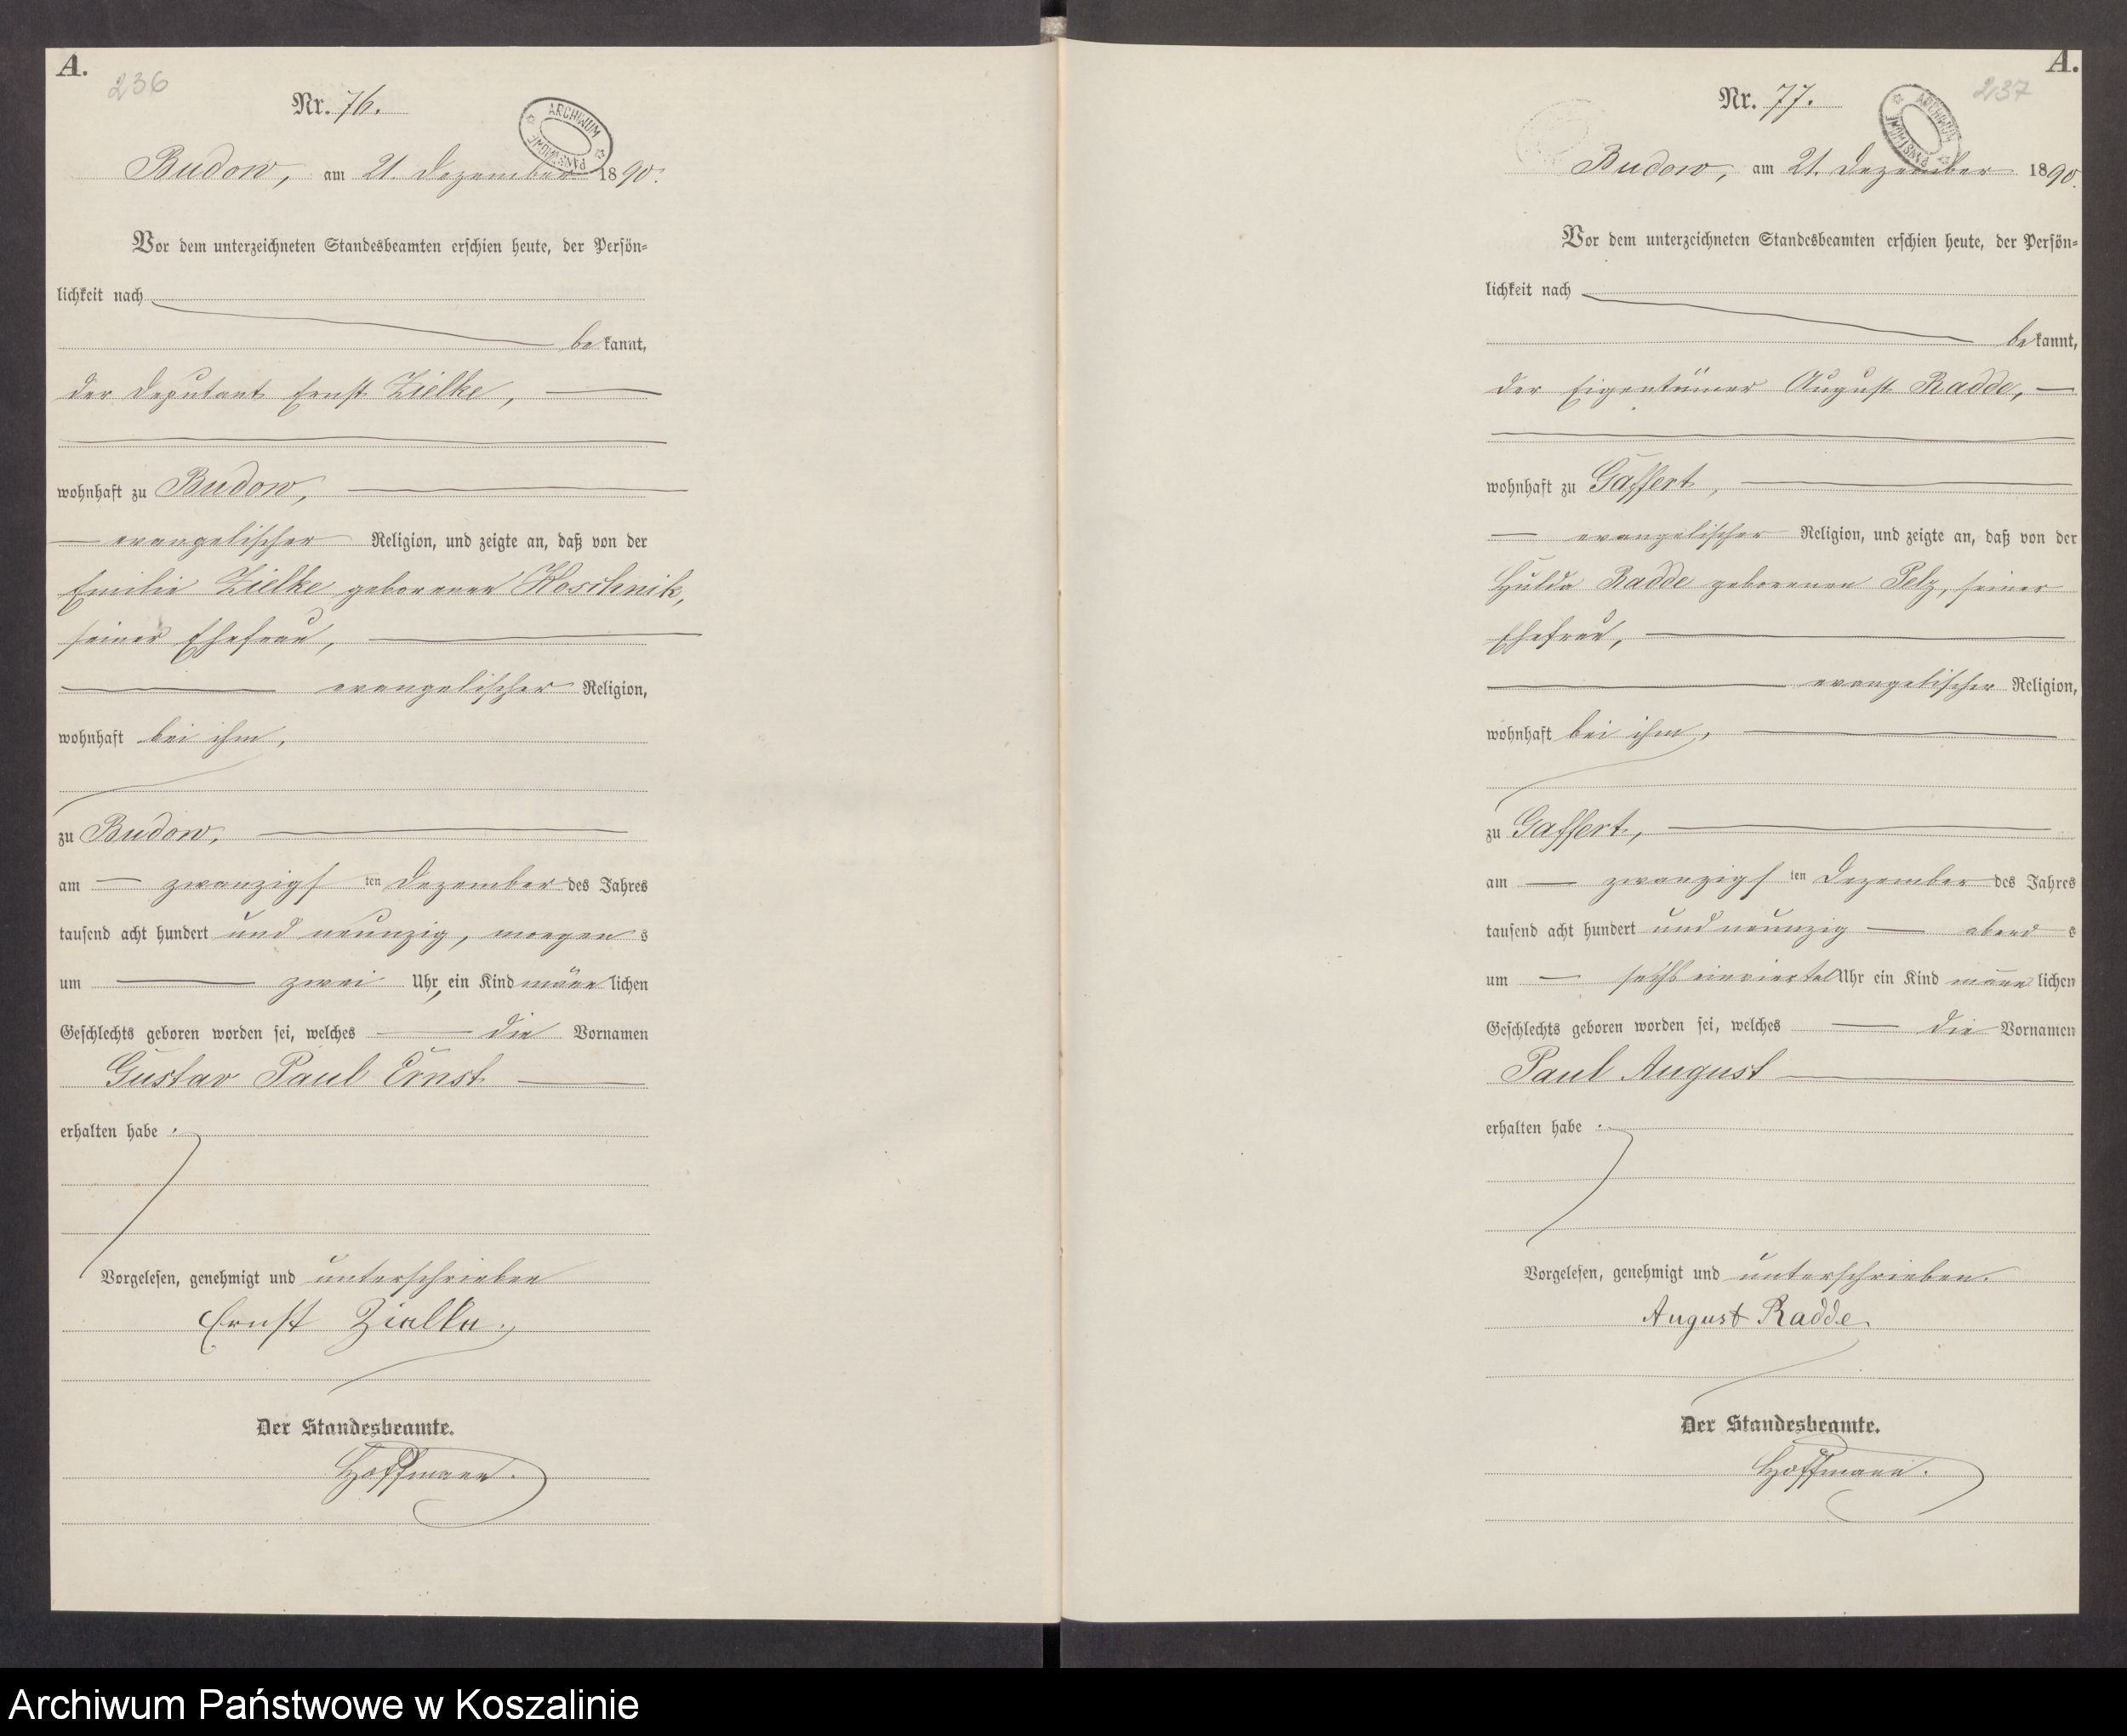 A.
236
Nr. 76.
ARCHIWUM PAŃSTWOWE
Budow, am 21. Dezember 1890.
Vor dem unterzeichneten Standesbeamten erschien heute, der Persön-
lichkeit nach
bekannt,
der Deputant Ernst Zielke,
wohnhaft zu Budow,
evangelischer Religion, und zeigte an, daß von der
Emilie Zielke geborenen Koschnik,
seiner Ehefrau,
evangelischer Religion,
wohnhaft bei ihm,
zu Budow,
am zwanzigsten Dezember des Jahres
tausend acht hundert und neunzig, morgens
um zwei Uhr, ein Kind männlichen
Geschlechts geboren worden sei, welches die Vornamen
Gustav Paul Ernst
erhalten habe.
Vorgelesen, genehmigt und unterschrieben
Ernst Zielke.
Der Standesbeamte.
Hoffmann.
A.
237
Nr. 77.
ARCHIWUM PAŃSTWOWE
Budow, am 21. Dezember 1890.
Vor dem unterzeichneten Standesbeamten erschien heute, der Persön-
lichkeit nach
bekannt,
der Eigentümer August Radde,
wohnhaft zu Gaffert,
evangelischer Religion, und zeigte an, daß von der
Hulda Radde geborenen Pelz, seiner
Ehefrau,
evangelischer Religion,
wohnhaft bei ihm,
zu Gaffert,
am zwanzigsten Dezember des Jahres
tausend acht hundert und neunzig abends
um sechs einviertel Uhr ein Kind männlichen
Geschlechts geboren worden sei, welches die Vornamen
Paul August
erhalten habe.
Vorgelesen, genehmigt und unterschrieben.
August Radde
Der Standesbeamte.
Hoffmann.
Archiwum Państwowe w Koszalinie